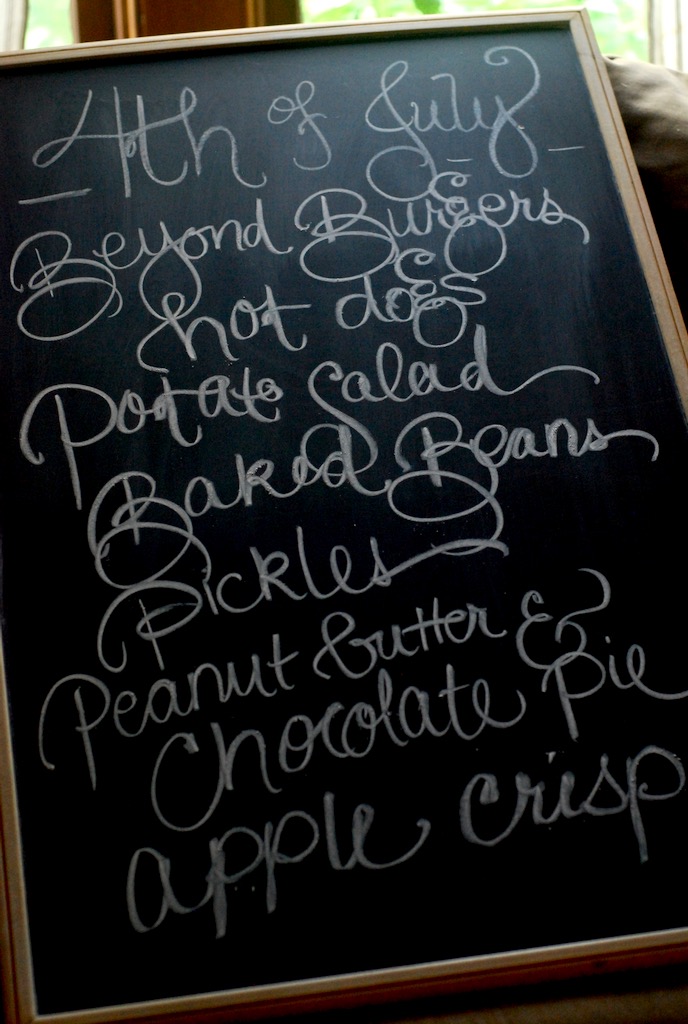 4th of July
Beyond Burgers
hot dogs
Potato Salad
Baked Beans
Pickles
Peanut Butter &
Chocolate Pie
apple crisp